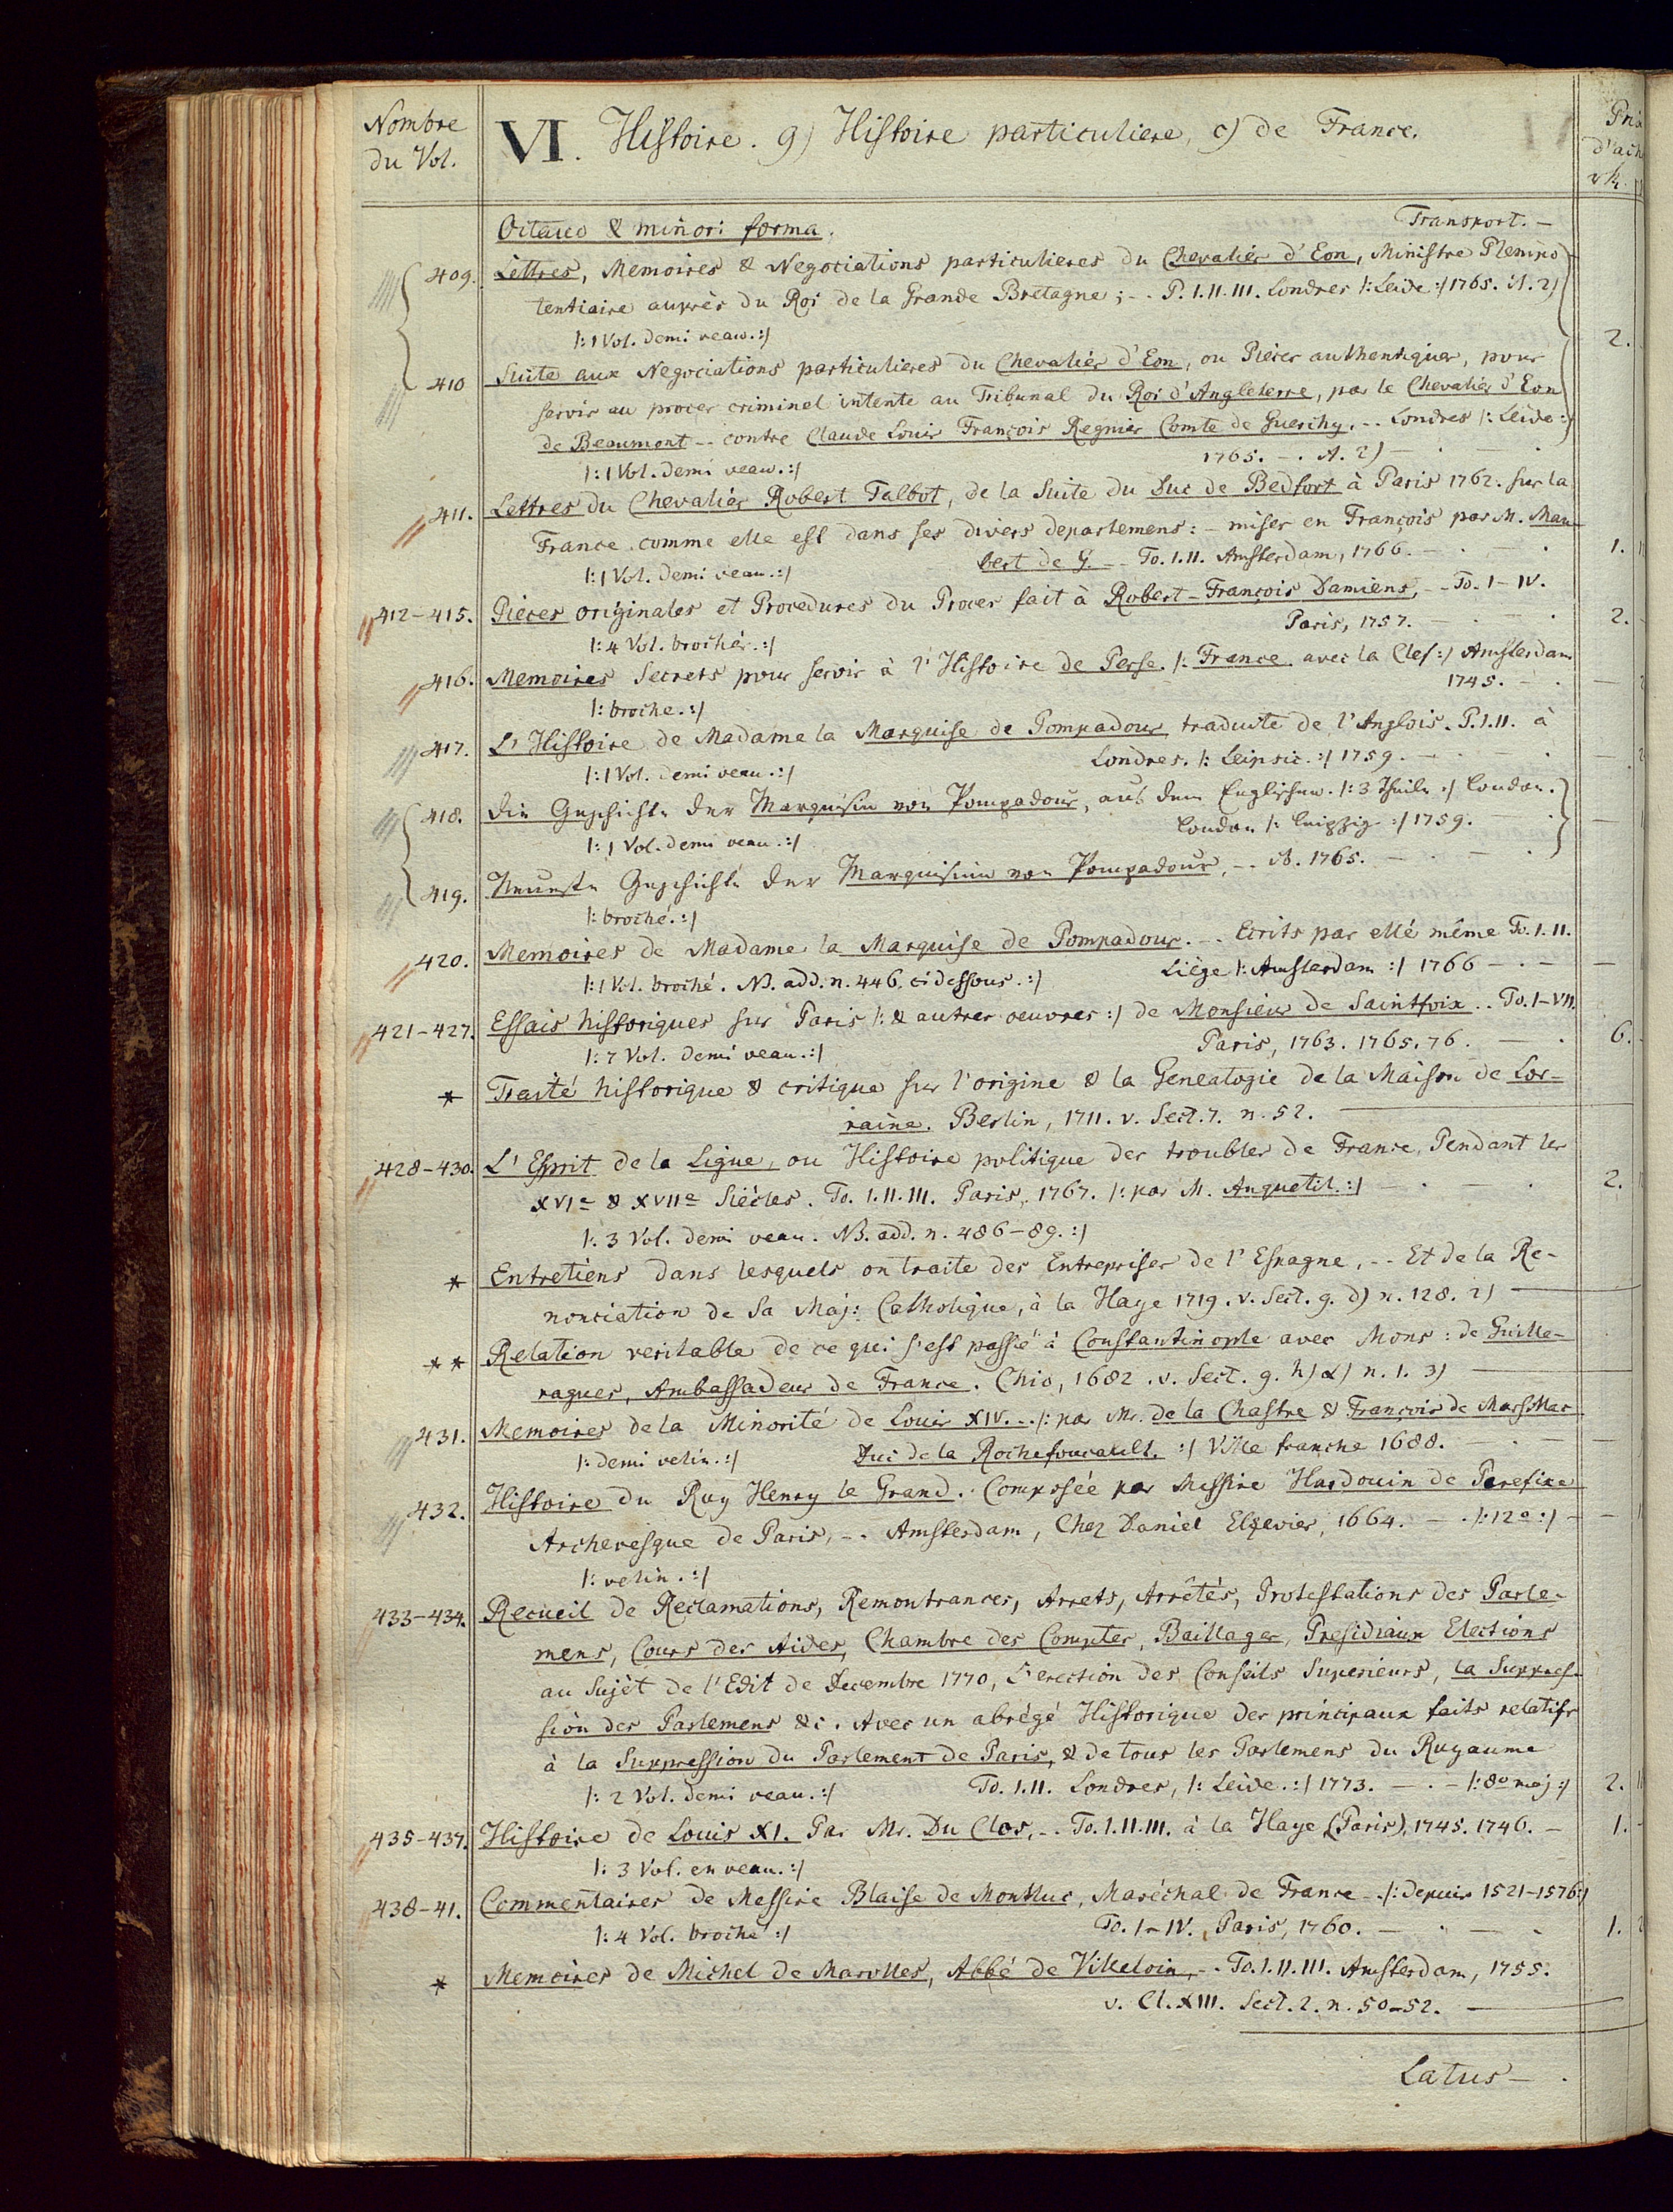 Nombre
du Vol.
VI. Histoire. 9) Histoire particuliere, c) de France.
d'ach
Octavo & minori forma.
Transport. –
409. Lettres, Memoires & Negociations particulieres du Chevalier d'Eon, Ministre Plenipo
tentiaire auprès du Roi de la Grande Bretagne; -. P. I. II. III. Londres |: Leide :| 1765. A. 2)
|: 1 Vol. demi veau. :|
2.
410 Suite aux Negociations particulieres du Chevalier d'Eon, ou Pièces authentiques, pour
servir au proces criminel intente au Tribunal du Roi d'Angleterre, par le Chevalier d'Eon
de Beaumont -. contre Claude Louis François Regnier Comte de Guerchy. -. Londres |: Leide :|
|: 1 Vol. demi veau. :| 1765. -. A. 2)
411. Lettres du Chevalier Robert Talbot, de la Suite du Duc de Bedfort à Paris 1762. sur la
France comme elle est dans ses divers departemens: - mises en François par M. Mau-
|: 1 Vol. demi veau. :| bert de G. -. To. I. II. Amsterdam, 1766. – . – . 1.
412-415. Pièces originales et Procedures du Proces fait à Robert-François Damiens, -. To. I – IV.
|: 4 Vol. brochés. :| Paris, 1757. – . – . 2.
416. Memoires Secrets pour servir à l'Histoire de Perse. |: France avec la Clef :| Amsterdam
|: broche. :| 1745. – .
417. L'Histoire de Madame la Marquise de Pompadour traduite de l'Anglois. P. I. II. à
|: 1 Vol. demi veau. :| Londres. |: Leipsic. :| 1759. – . – .
418. Die Geschichte der Marquisin von Pompadour, aus dem Englischen. |: 3 Theile :| London.
|: 1 Vol. demi veau. :| London |: Leipzig :| 1759. – .
419. Neueste Geschichte der Marquisinn von Pompadour, -. A. 1765. – . – .
|: broché. :|
420. Memoires de Madame la Marquise de Pompadour. -. Ecrits par elle même To. I. II.
|: 1 Vol. broché. NB. add. n. 446. ci dessous. :| Liège |: Amsterdam :| 1766 – . –
421-427. Essais historiques sur Paris |: & autres oeuvres :| de Monsieur de Saintfoix. . To. I – VII.
|: 7 Vol. demi veau. :| Paris, 1763. 1765. 76. – . 6.
* Traité historique & critique sur l'origine & la Genealogie de la Maison de Lor-
raine. Berlin, 1711. v. Sect. 7. n. 52.
428-430. L'Esprit de la Ligue, ou Histoire politique des troubles de France, Pendant les
XVIe & XVIIe Siècles. To. I. II. III. Paris, 1767. |: par M. Anquetil. :| – . – . 2.
|: 3 Vol. demi veau. NB. add. n. 486-89. :|
* Entretiens dans lesquels on traite des Entreprises de l'Espagne, -. Et de la Re-
nonciation de Sa Maj: Catholique, à la Haye 1719. v. Sect. 9. d) n. 128. 2)
** Relation veritable de ce qui s'est passé à Constantinople avec Mons: de Guille-
ragues, Ambassadeur de France. Chio, 1682. v. Sect. 9. h) α) n. 1. 3)
431. Memoires de la Minorité de Louis XIV. -. |: par Mr. de la Chastre & François de Marsillac
|: demi velin. :| Duc de la Rochefoucault. :| Ville franche 1688. – . –
432. Histoire du Roy Henry le Grand. Composée par Messire Hardouin de Perefixe
Archevesque de Paris, -. Amsterdam, Chez Daniel Elzevier, 1664. – . |: 12o :| –
|: velin. :|
433-434. Recueil de Reclamations, Remontrances, Arrets, Arrêtés, Protestations des Parle-
mens, Cours des Aides, Chambre des Comptes, Baillages, Presidiaux Elections
au Sujèt de l'Edit de Decembre 1770, L'erection des Conseils Superieurs, la Suppres-
sion des Parlemens &c. Avec un abrégé Historique des principaux faits relatifs
à la Suppression du Parlement de Paris, & de tous les Parlemens du Royaume
|: 2 Vol. demi veau. :| To. I. II. Londres, |: Leide. :| 1773. – . – |: 8o maj :| 2.
435-437. Histoire de Louis XI. Par Mr. Du Clos, -. To. I. II. III. à la Haye (Paris), 1745. 1746. – 1.
|: 3 Vol. en veau. :|
438-41. Commentaires de Messire Blaise de Montluc, Maréchal de France -. |: depuis 1521-1576 :|
|: 4 Vol. broché :| To. I – IV. Paris, 1760. – . – . 1.
* Memoires de Michel de Marolles, Abbé de Villeloin, -. To. I. II. III. Amsterdam, 1755.
v. Cl. XIII. Sect. 2. n. 50-52.
Latus – .